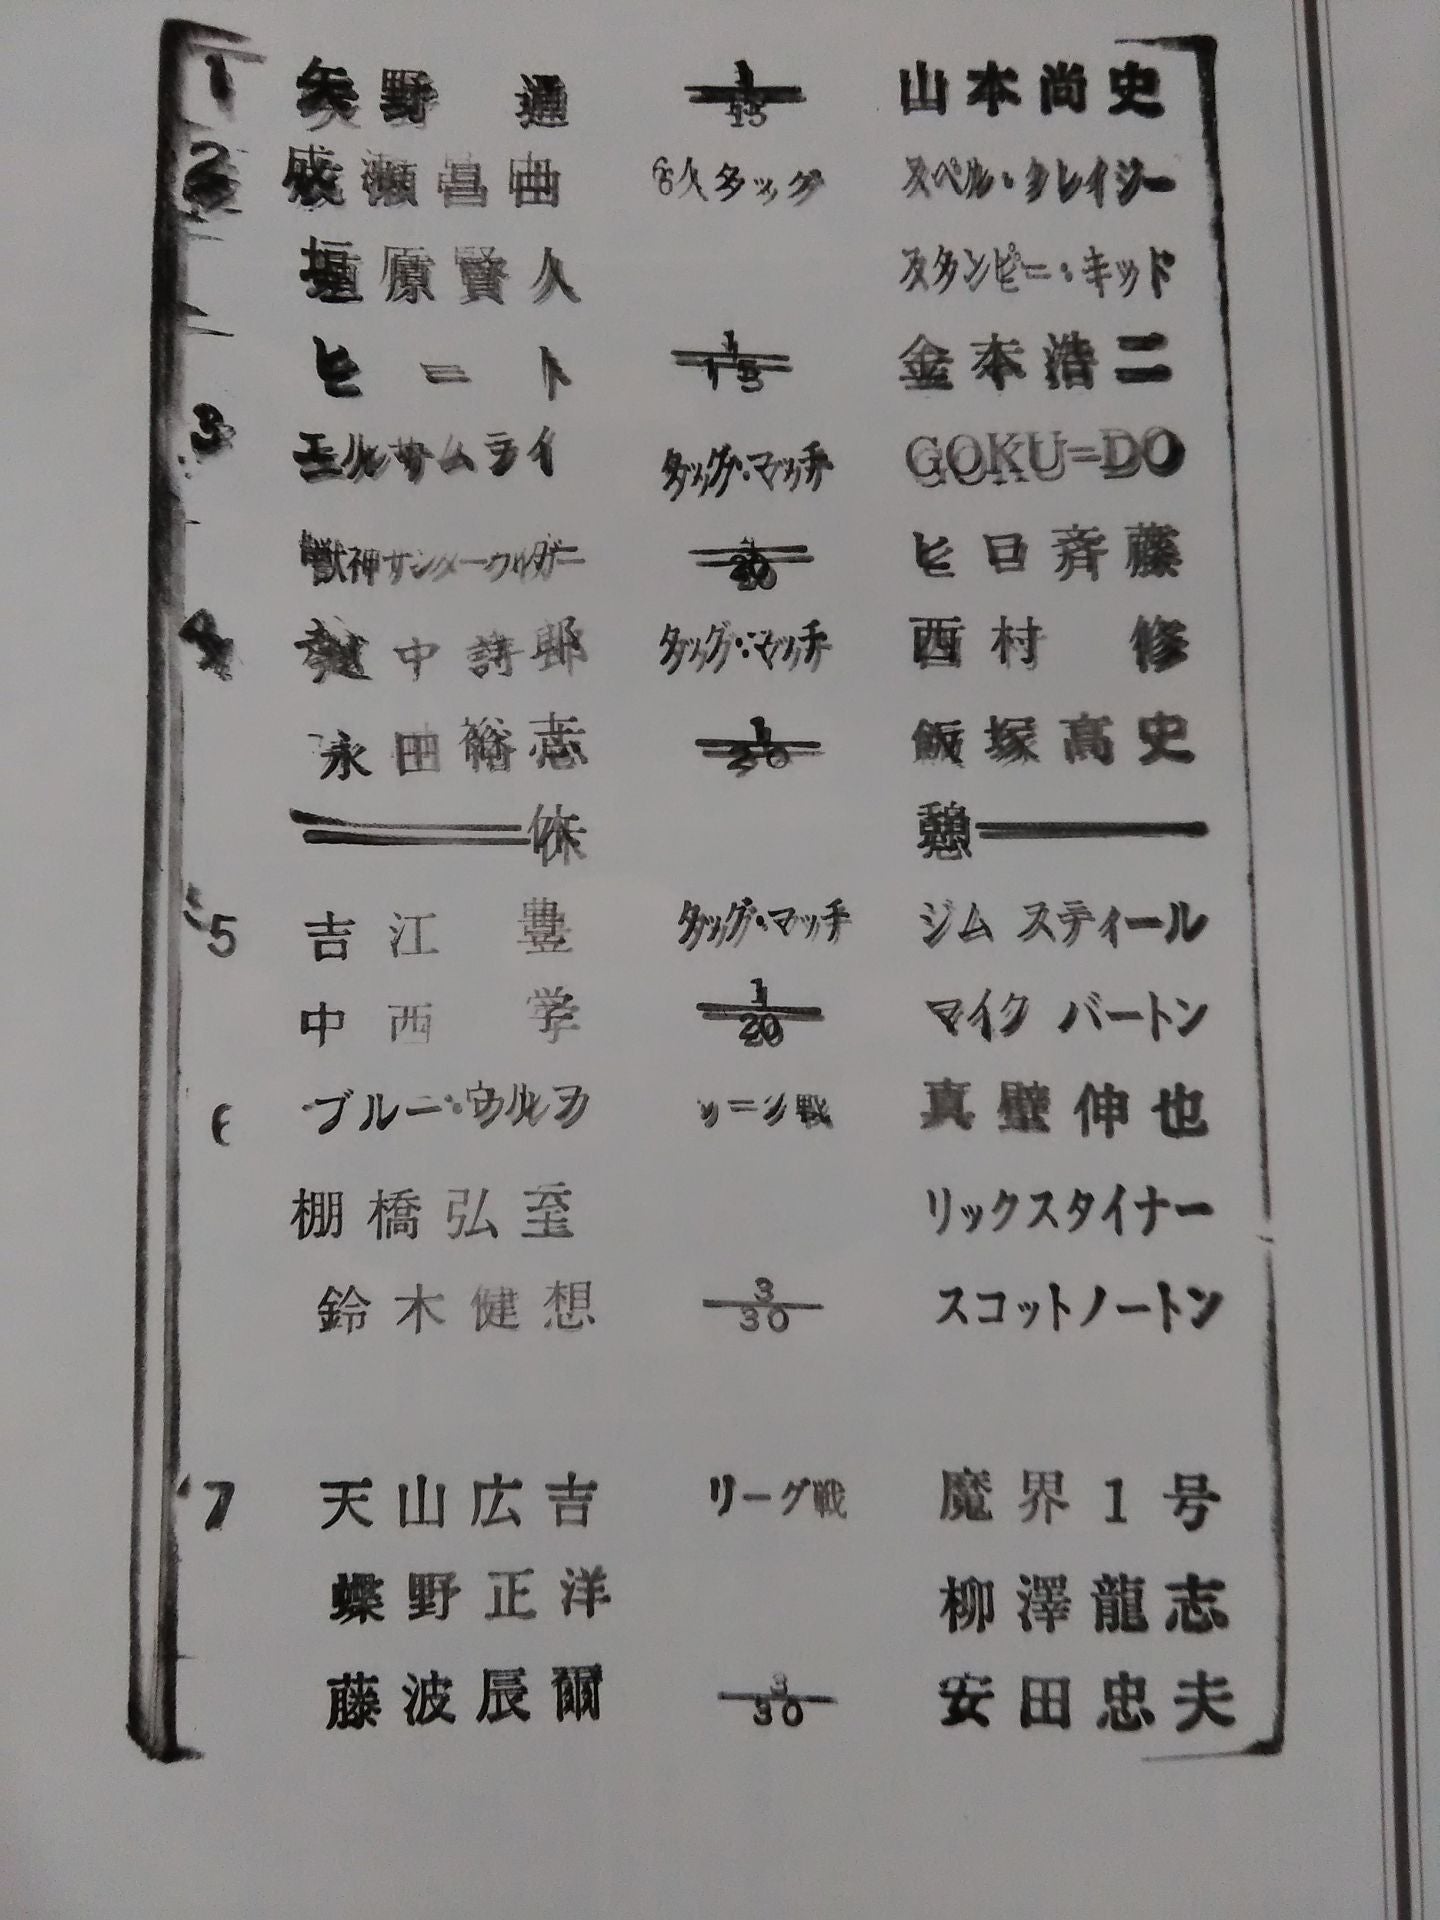 1 矢野 通 1/15 山本尚史
2 成瀬昌由 6人タッグ スペル・クレイジー
垣原賢人 スタンピー・キッド
ヒート 1/15 金本浩二
3 エルサムライ タッグ・マッチ GOKU=DO
獣神サンダーライガー 1/20 ヒロ斉藤
4 越中詩郎 タッグ・マッチ 西村 修
永田裕志 1/20 飯塚高史
休 憩
5 吉江 豊 タッグ・マッチ ジム スティール
中西 学 1/20 マイク バートン
6 ブルー・ウルフ リーグ戦 真壁伸也
棚橋弘至 リックスタイナー
鈴木健想 3/30 スコットノートン
7 天山広吉 リーグ戦 魔界1号
蝶野正洋 柳澤龍志
藤波辰爾 3/30 安田忠夫